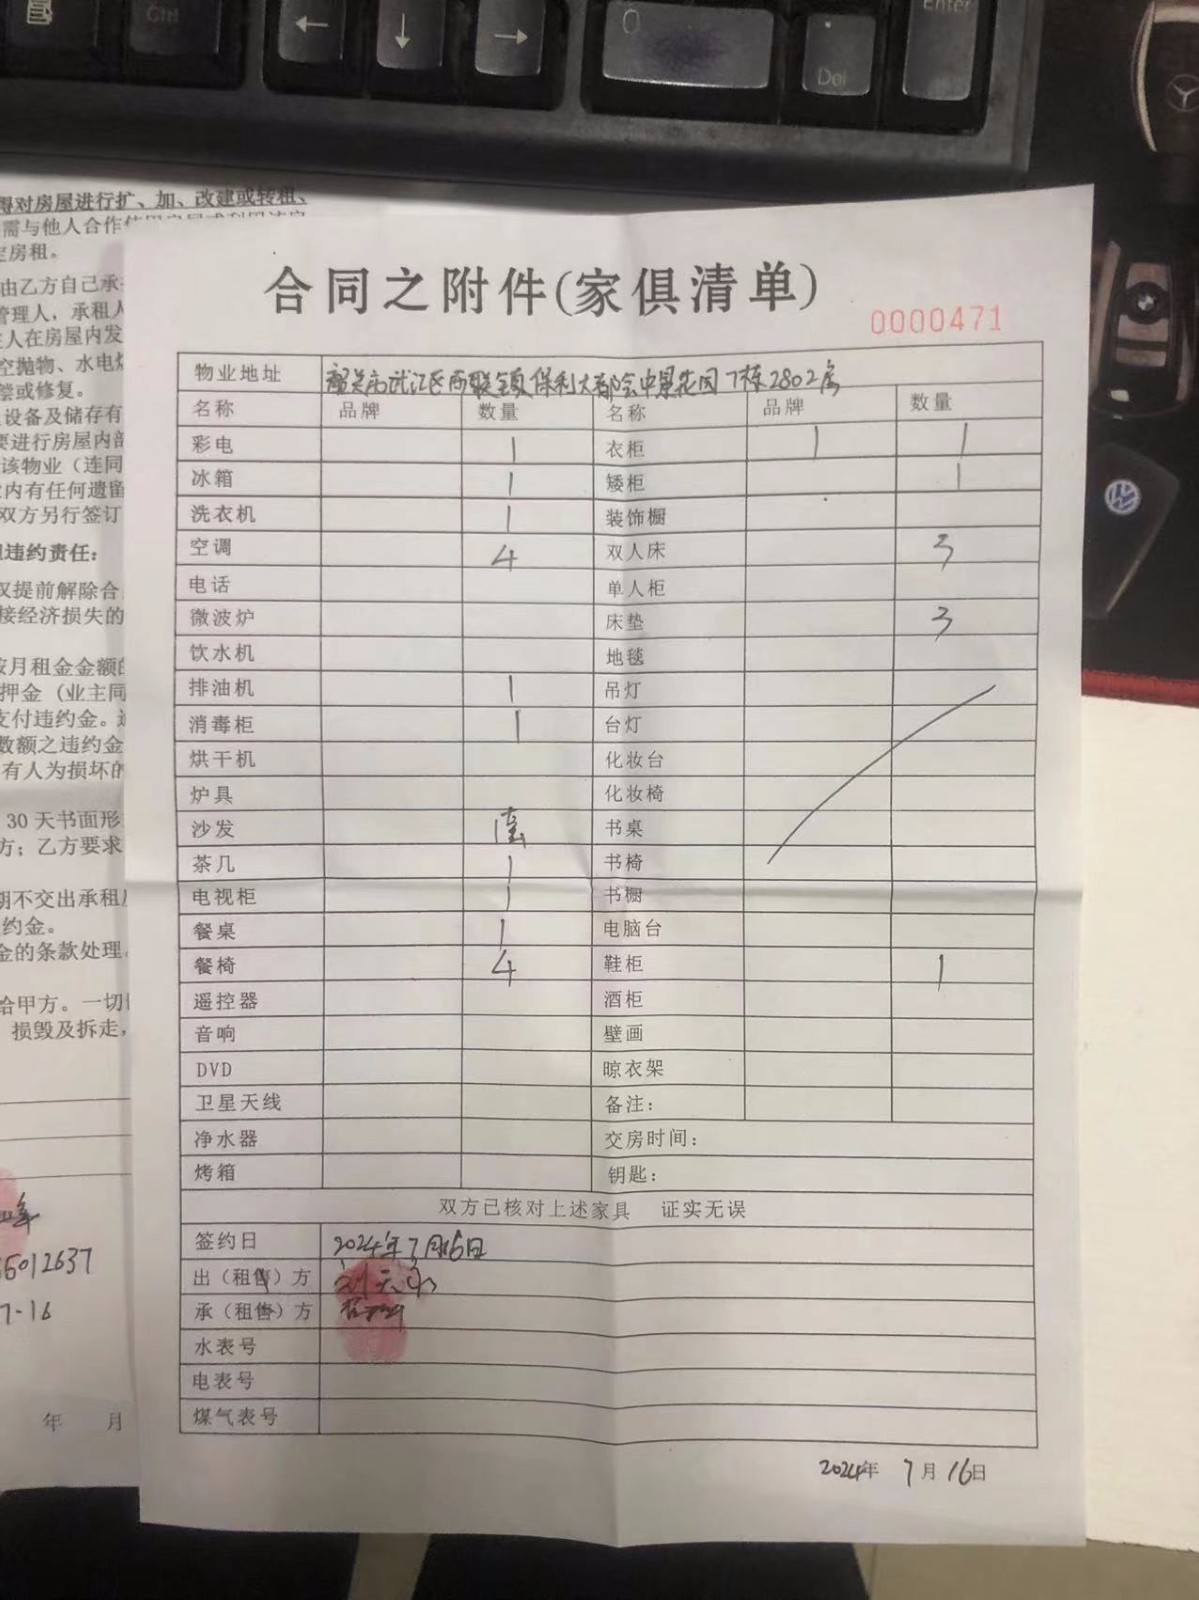 Ctrl
←
↓
→
0
.
Del
Enter
得对房屋进行扩、加、改建或转租、
需与他人合作
房租。
由乙方自己承
管理人，承租人
人在房屋内发
空抛物、水电
偿或修复。
设备及储存有
要进行房屋内部
该物业（连同
内有任何遗留
双方另行签订
违约责任：
提前解除合
接经济损失的
按月租金金额的
押金（业主同
支付违约金。
数额之违约金
有人为损坏的
30天书面形
方；乙方要求
期不交出承租
约金。
金的条款处理
给甲方。一切
损毁及拆走，
5012637
7-16
年 月
合同之附件(家俱清单)
0000471
物业地址 韶关市武江区西联镇保利大都会中景花园7栋2802房
名称 品牌 数量 名称 品牌 数量
彩电 1 衣柜 1 1
冰箱 1 矮柜 1
洗衣机 1 装饰橱
空调 4 双人床 3
电话 单人柜
微波炉 床垫 3
饮水机 地毯
排油机 1 吊灯
消毒柜 1 台灯
烘干机 化妆台
炉具 化妆椅
沙发 书桌
茶几 1 书椅
电视柜 1 书橱
餐桌 1 电脑台
餐椅 4 鞋柜 1
遥控器 酒柜
音响 壁画
DVD 晾衣架
卫星天线 备注：
净水器 交房时间：
烤箱 钥匙：
双方已核对上述家具 证实无误
签约日 2024年7月16日
出（租售）方
承（租售）方
水表号
电表号
煤气表号
2024年 7月16日